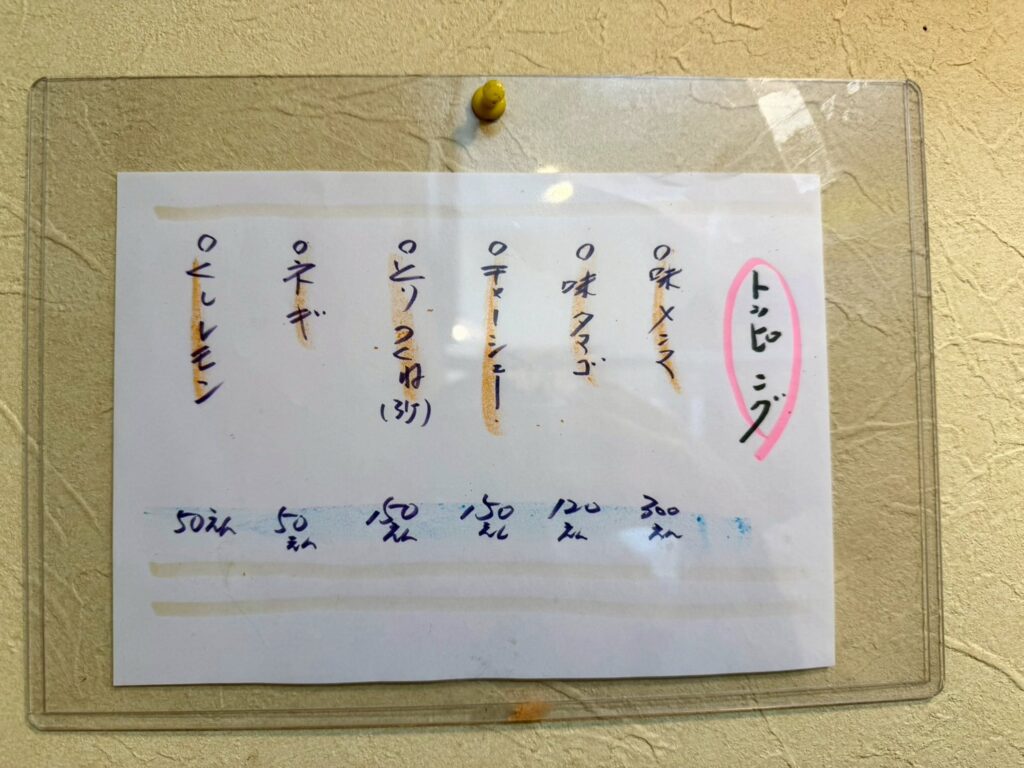 トッピング
○味メンマ 300えん
○味タマゴ 120えん
○チャーシュー 150えん
○とりつくね(3ケ) 150えん
○ネギ 50えん
○くしレモン 50えん